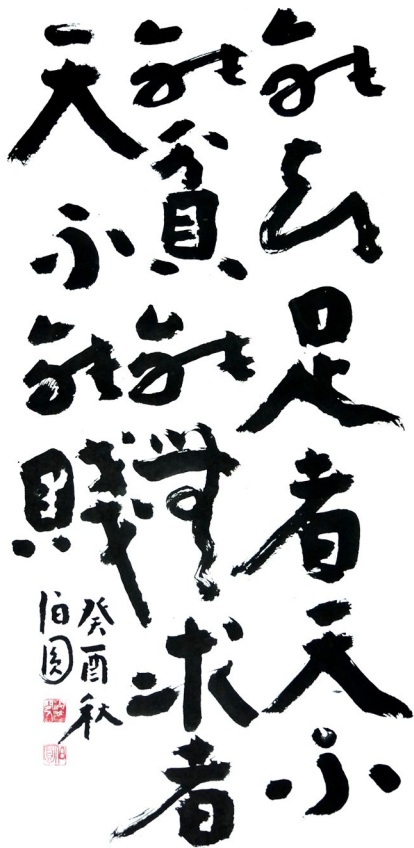 能知足者天不
能貧能無求者
天不能賤
癸酉秋
伯圓